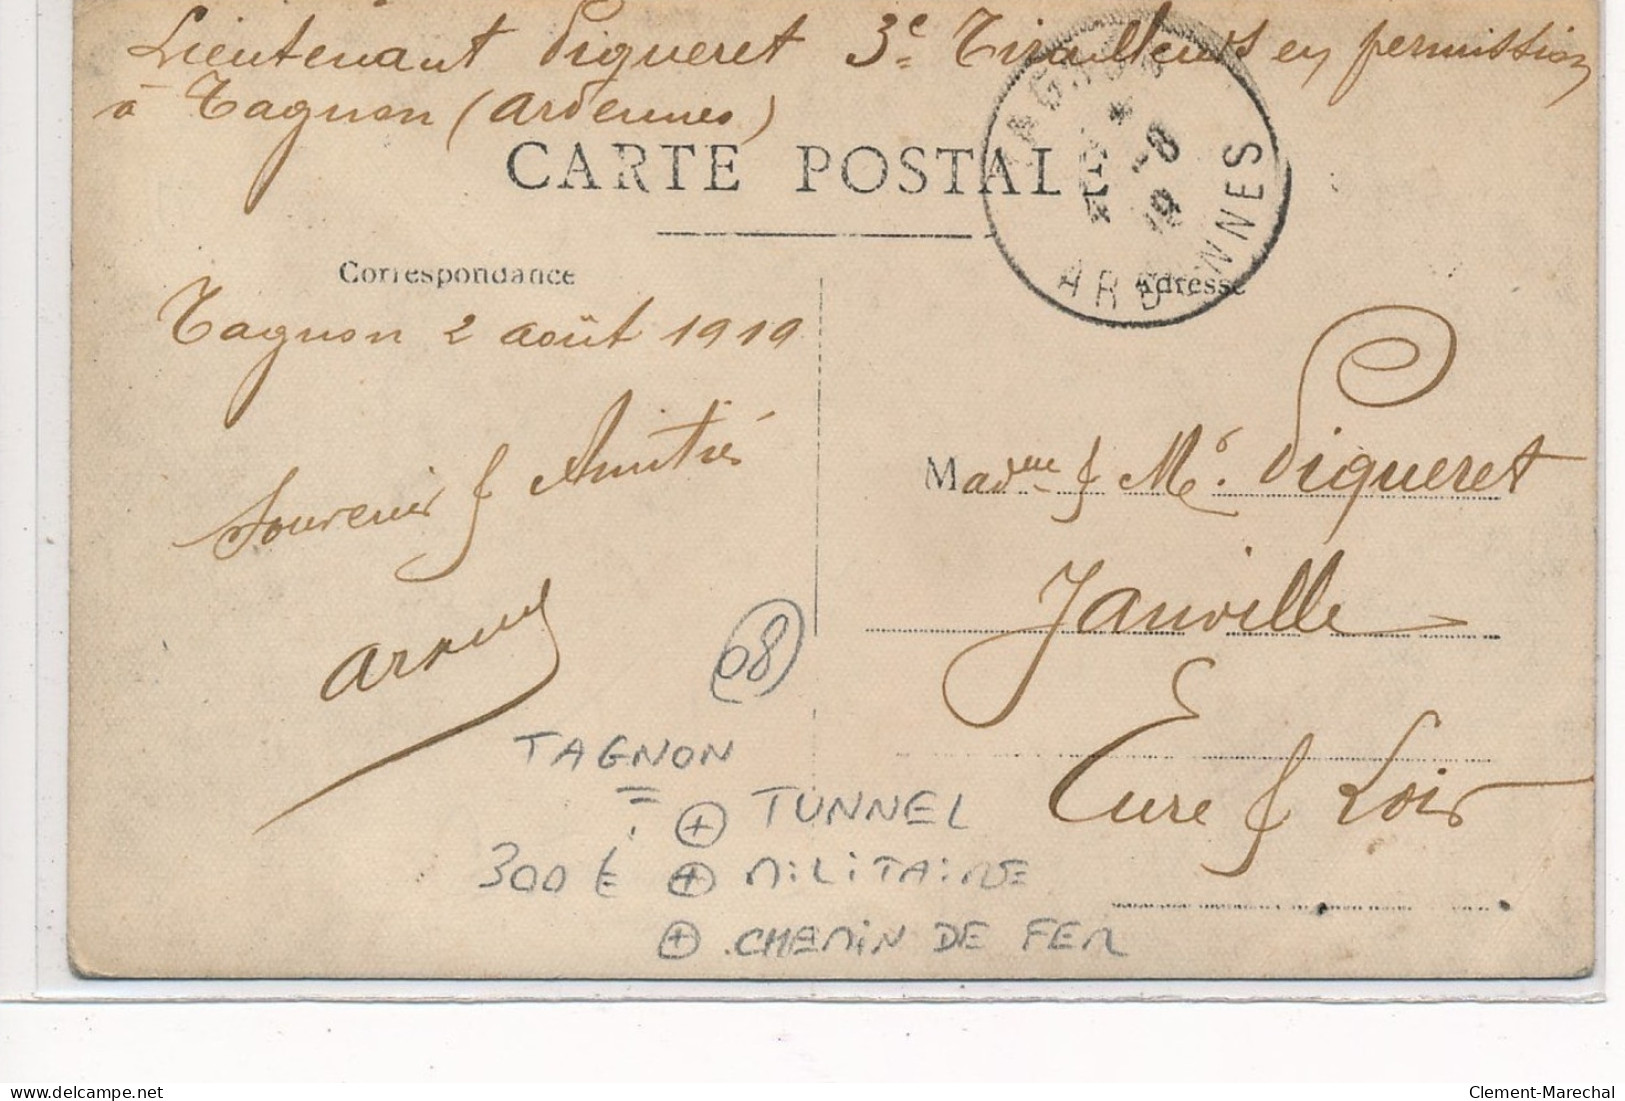 Lieutenant Piqueret 3e Tirailleurs en permission
à Tagnon (Ardennes)
CARTE POSTALE
TAGNON
* -8
19
ARDENNES
Correspondance
Adresse
Tagnon 2 août 1919
Souvenir & Amitiés
Madme & Mr Piqueret
Janville
Eure & Loir
08
TAGNON
+ TUNNEL
300 €
+ MiLiTAiRE
+ CHEMiN DE FER
delcampe.net
Clement-Marechal